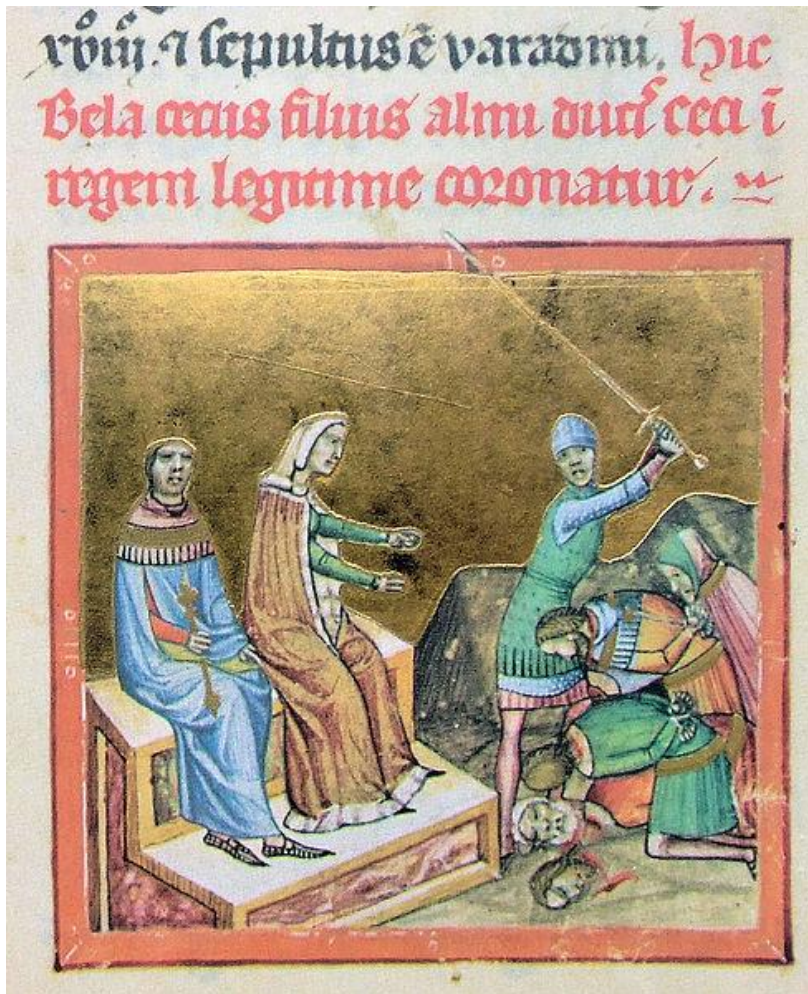 xviij. ⁊ sepultus ē varadini. Hic
Bela cecus filius almi ducꝭ ceci ī
regem legitime coronatur.